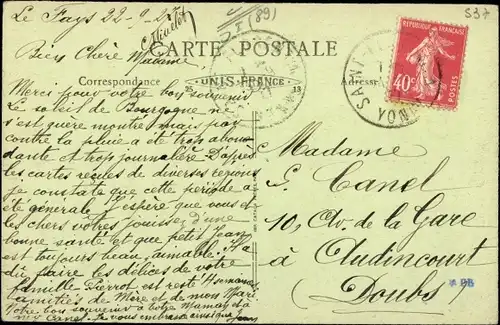 Le Fays 22-9-27
(89)
537
CARTE POSTALE
Bien Chère Madame,
Correspondance
UNIS-FRANCE
Adresse
REPUBLIQUE FRANÇAISE
40c
POSTES
Merci pour votre bon souvenir
Le soleil de Bourgogne ne
s'est guère montré mais par
contre la pluie a été trop abon
dante et trop journalière. D'après
les cartes reçues de diverses régions
je constate que cette période a
été générale. J'espère que vous et
les chers vôtres jouissez d'une
bonne santé et que petit Jean
est toujours beau, aimable. Il a
dû faire les délices de votre
famille. Pierrot est resté 4 semaines
Amitiés de Mère et de mon Mari
Notre bon souvenir à votre Maman et à
Je vous embrasse ainsi que Jean
Madame
G. Canel
10, Av. de la Gare
à Audincourt
Doubs
* BB